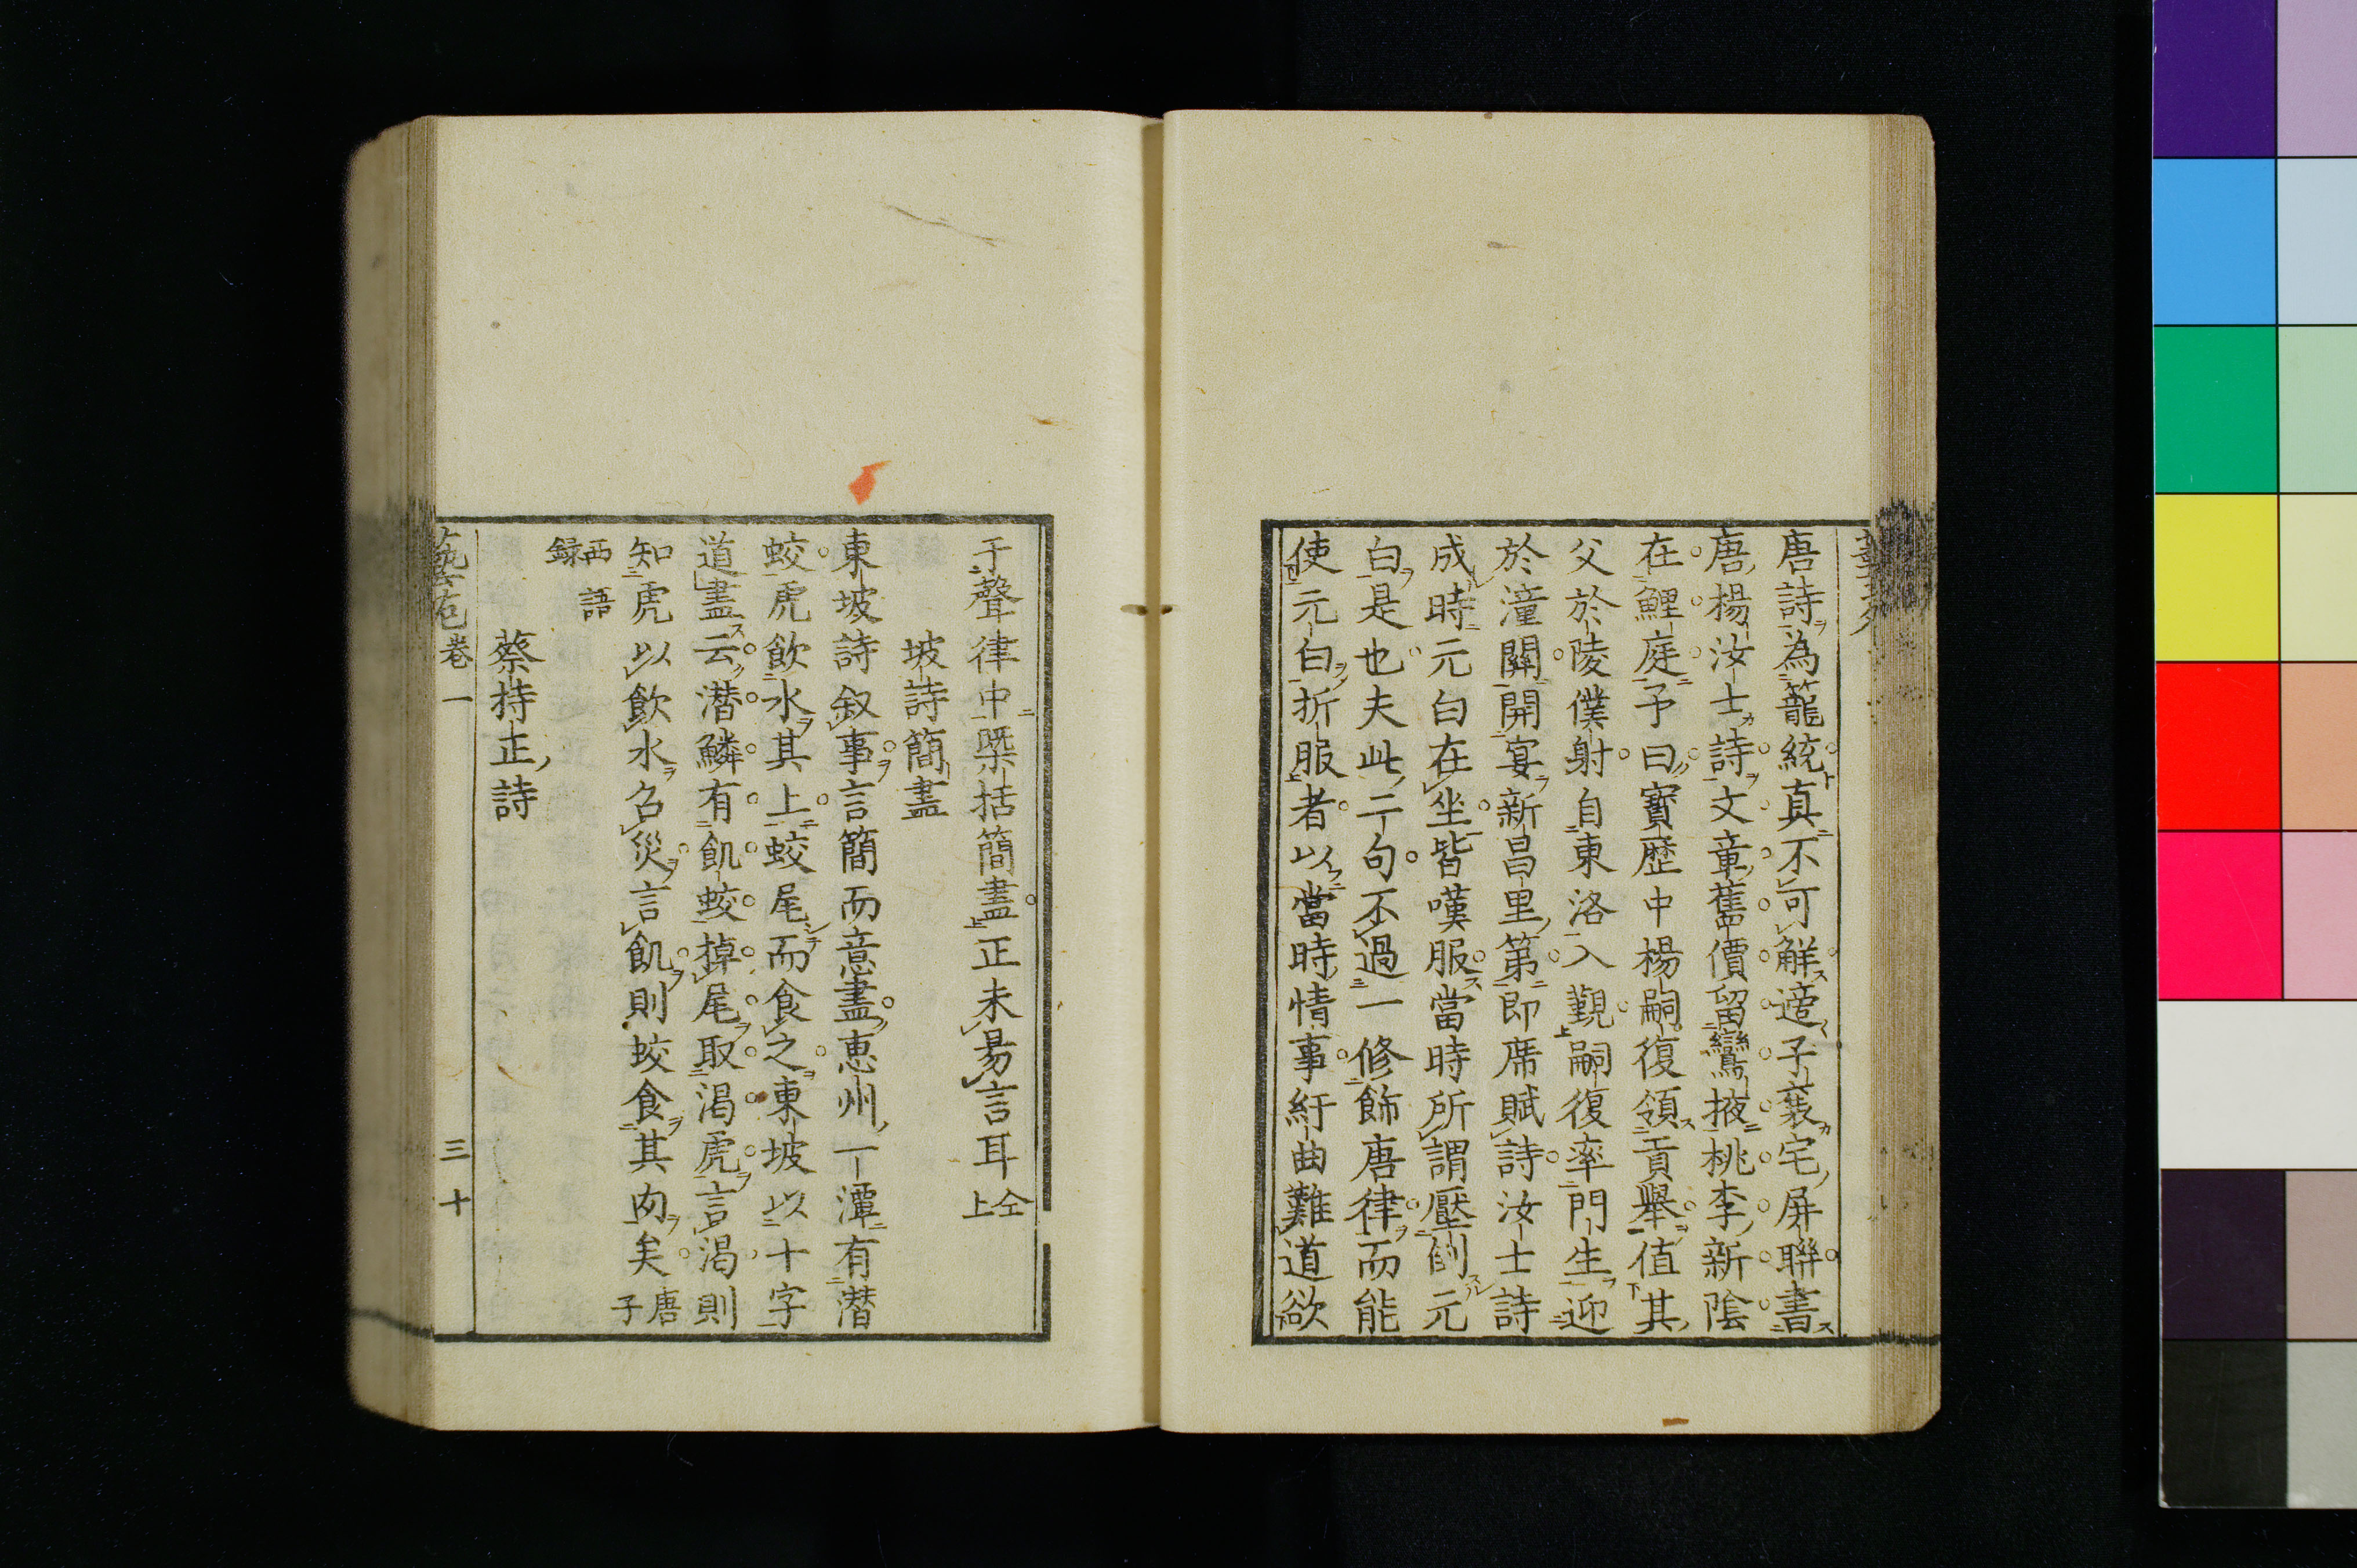 唐詩為籠統真不可解遆子裴宅屏聯書
唐楊汝士詩文章舊價留鸞掖桃李新陰
在鯉庭予曰寳歷中楊嗣復領貢舉值其
父於陵僕射自東洛入觀嗣復率門生迎
於潼關開宴新昌里第即席賦詩汝士詩
成時元白在坐皆嘆服當時所謂壓倒元
白是也夫此二句不過一修飾唐律而能
使元白折服者以當時情事紆曲難道欲
于聲律中檃括簡盡正未易言耳仝上
坡詩簡盡
東坡詩叙事言簡而意盡惠州一潭有潜
蛟虎飲水其上蛟尾而食之東坡以十字
道盡云潜鱗有飢蛟掉尾取渴虎言渴則
知虎以飲水召災言飢則蛟食其肉矣唐子
西語録
蔡持正詩
藝苑卷一
三十